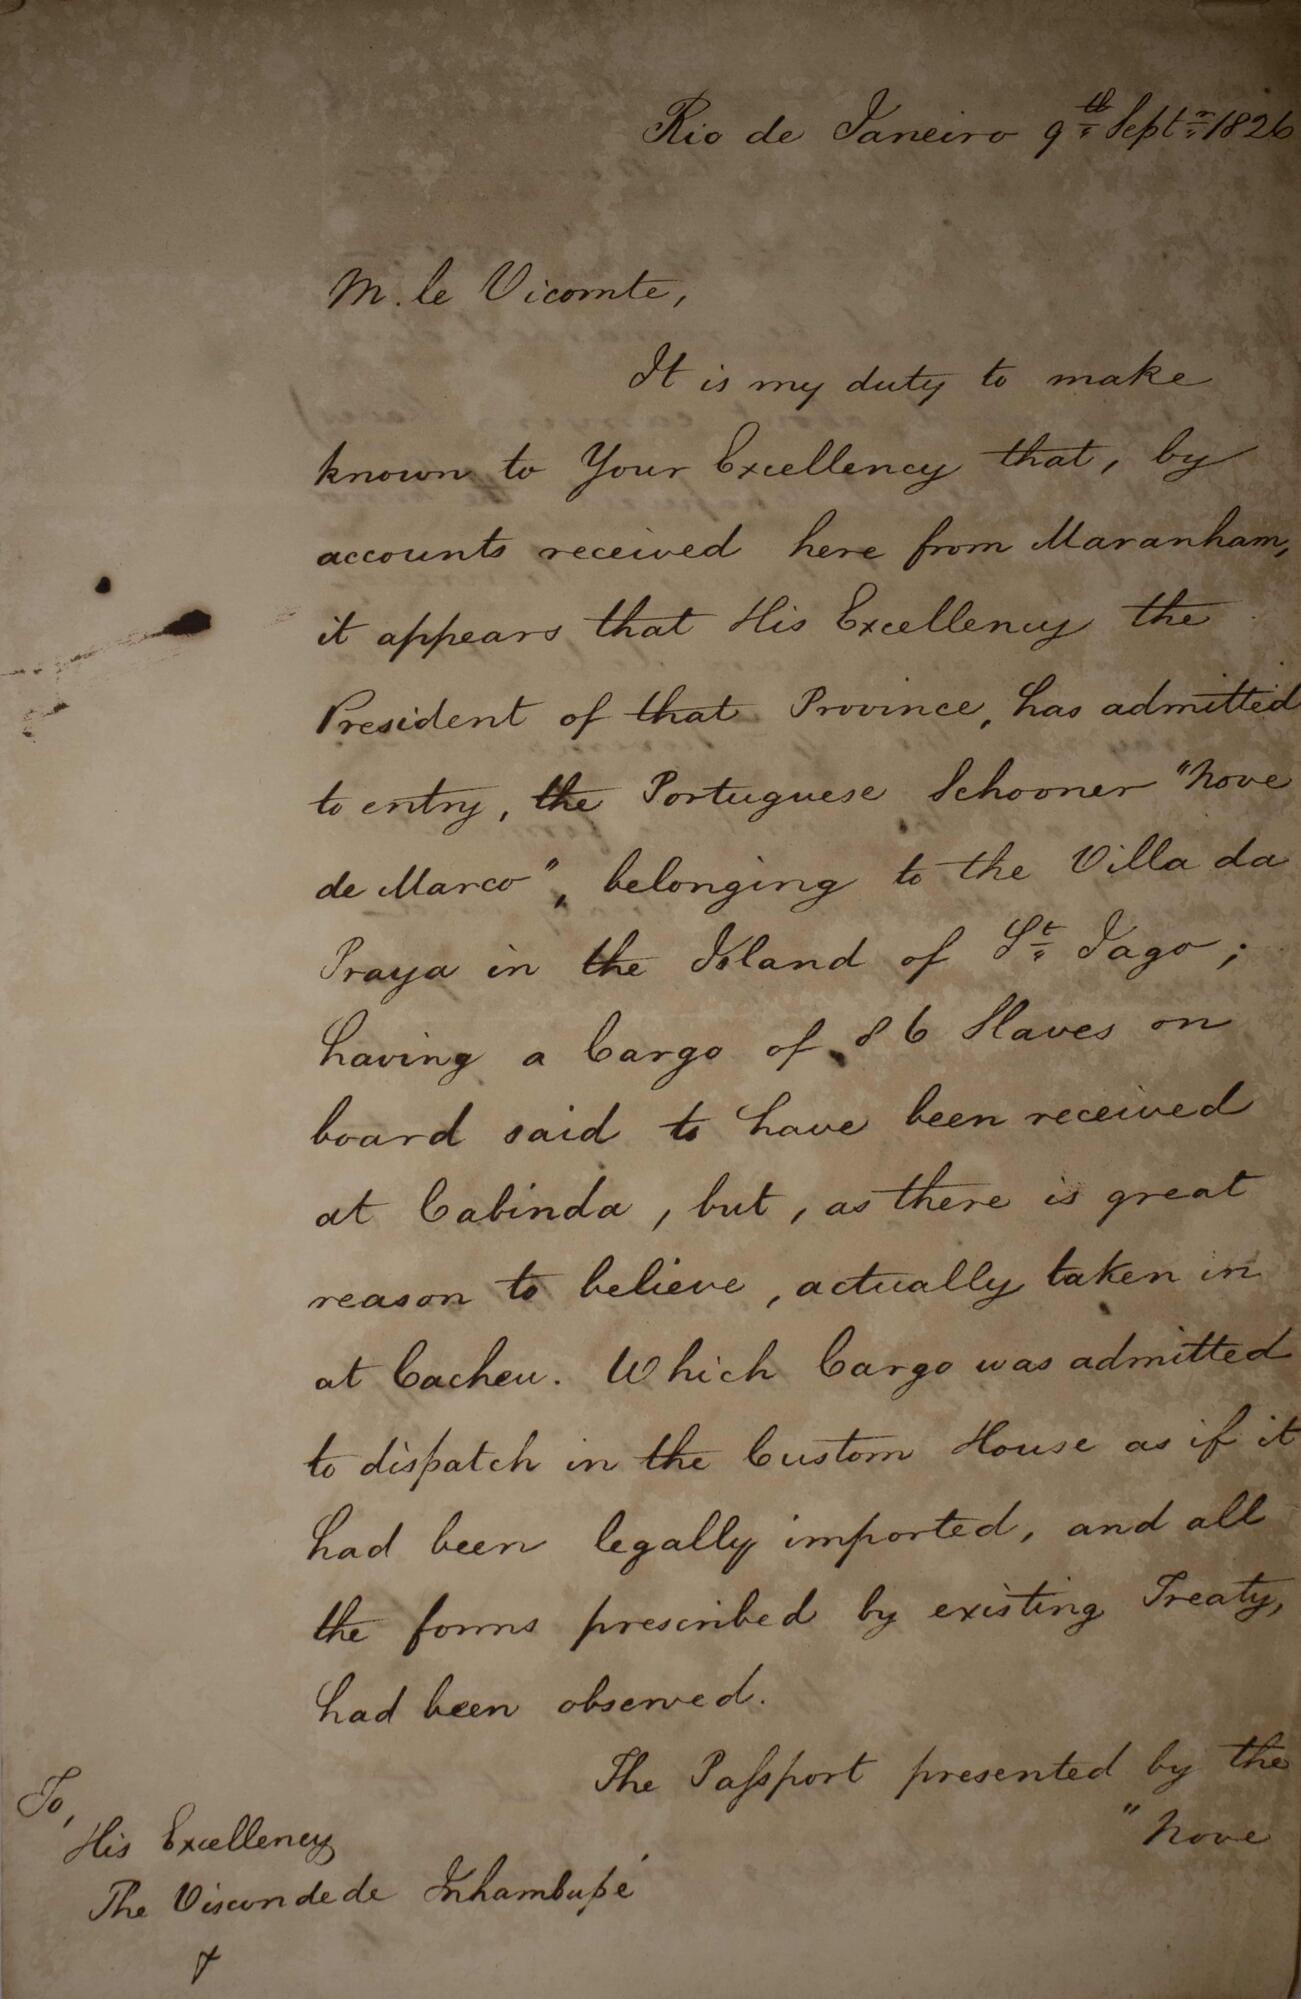 Rio de Janeiro 9th Septr 1826
M. le Vicomte,
It is my duty to make
known to Your Excellency that, by
accounts received here from Maranham,
it appears that His Excellency the
President of that Province, has admitted
to entry, the Portuguese Schooner "Nove
de Marco", belonging to the Villa da
Praya in the Island of St. Jago;
having a Cargo of 86 Slaves on
board said to have been received
at Cabinda, but, as there is great
reason to believe, actually taken in
at Cacheu. Which Cargo was admitted
to dispatch in the Custom House as if it
had been legally imported, and all
the forms prescribed by existing Treaty,
had been observed.
The Paſsport presented by the
"Nove
To,
His Excellency
The Visconde de Inhambupé